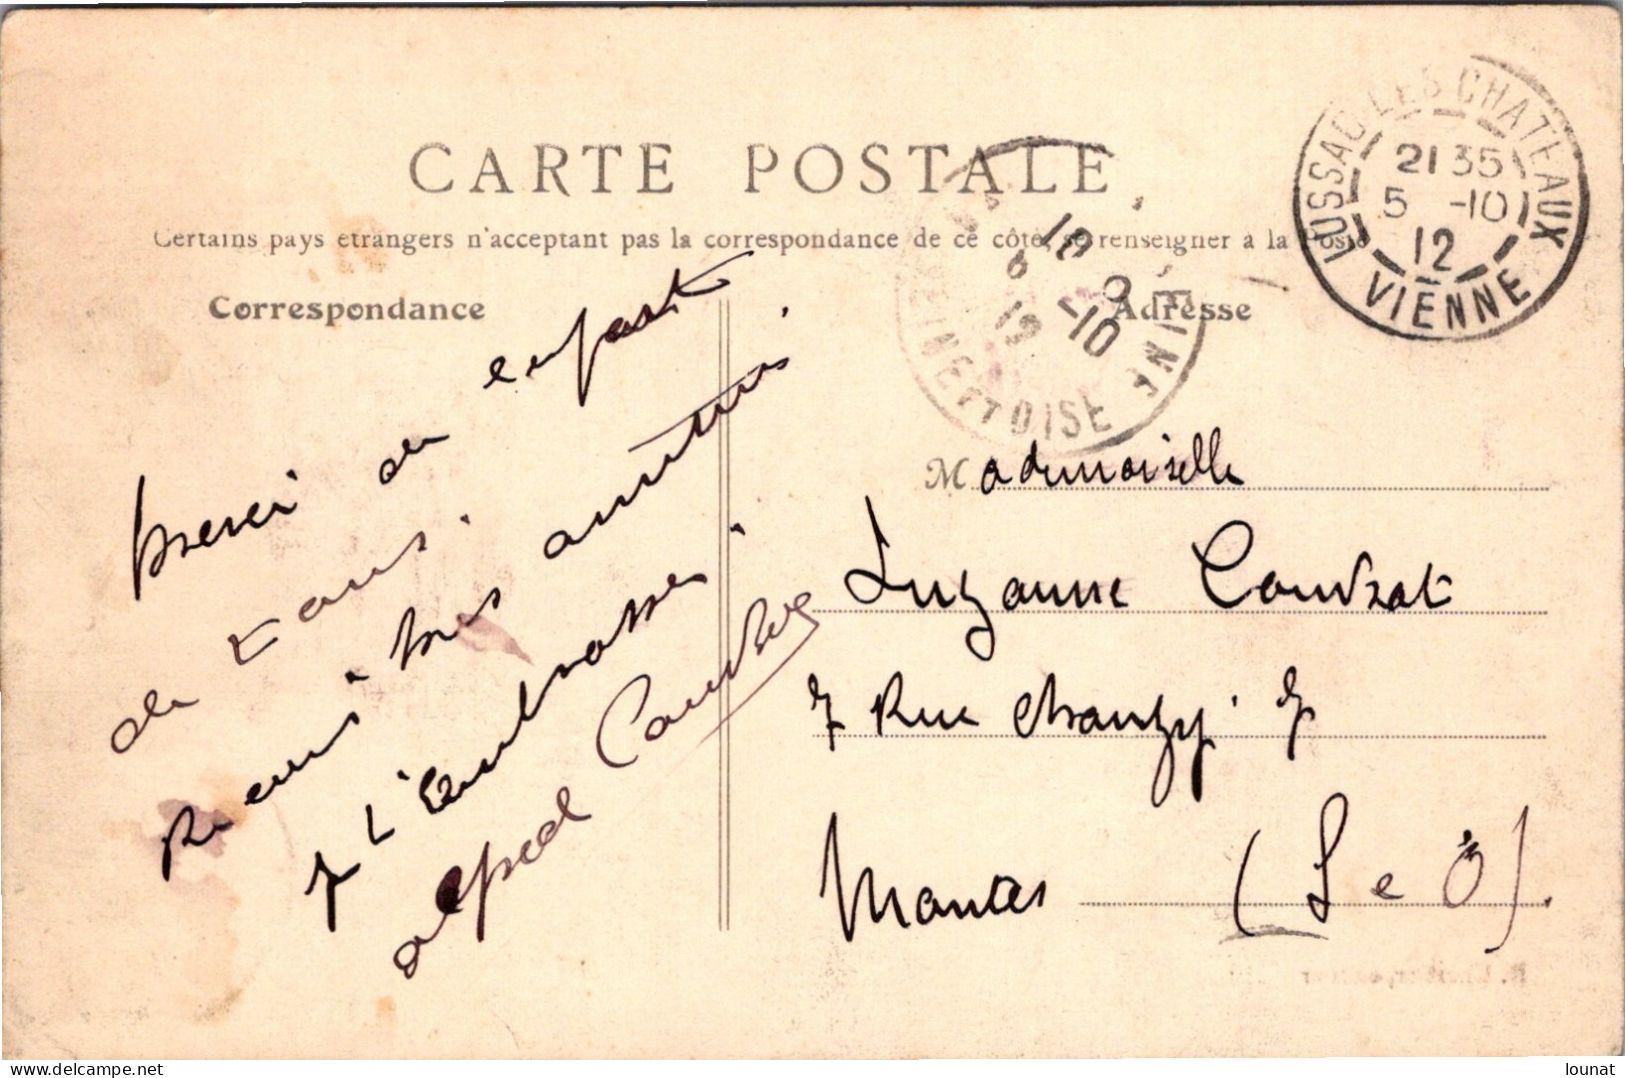 CARTE POSTALE
Certains pays étrangers n'acceptant pas la correspondance de ce côté, se renseigner à la Poste
Correspondance
Adresse
LUSSAC-LES-CHATEAUX
21 35
5 -10
12
VIENNE
18
6 -10
12
SEINE-ET-OISE
Merci de
de vous.
mes amitiés
& L'Embrasse
alfred Coudret
Mademoiselle
Suzanne Coudrat
7 Rue Chanzy 7
Mantes (S e O).
delcampe.net
lounat